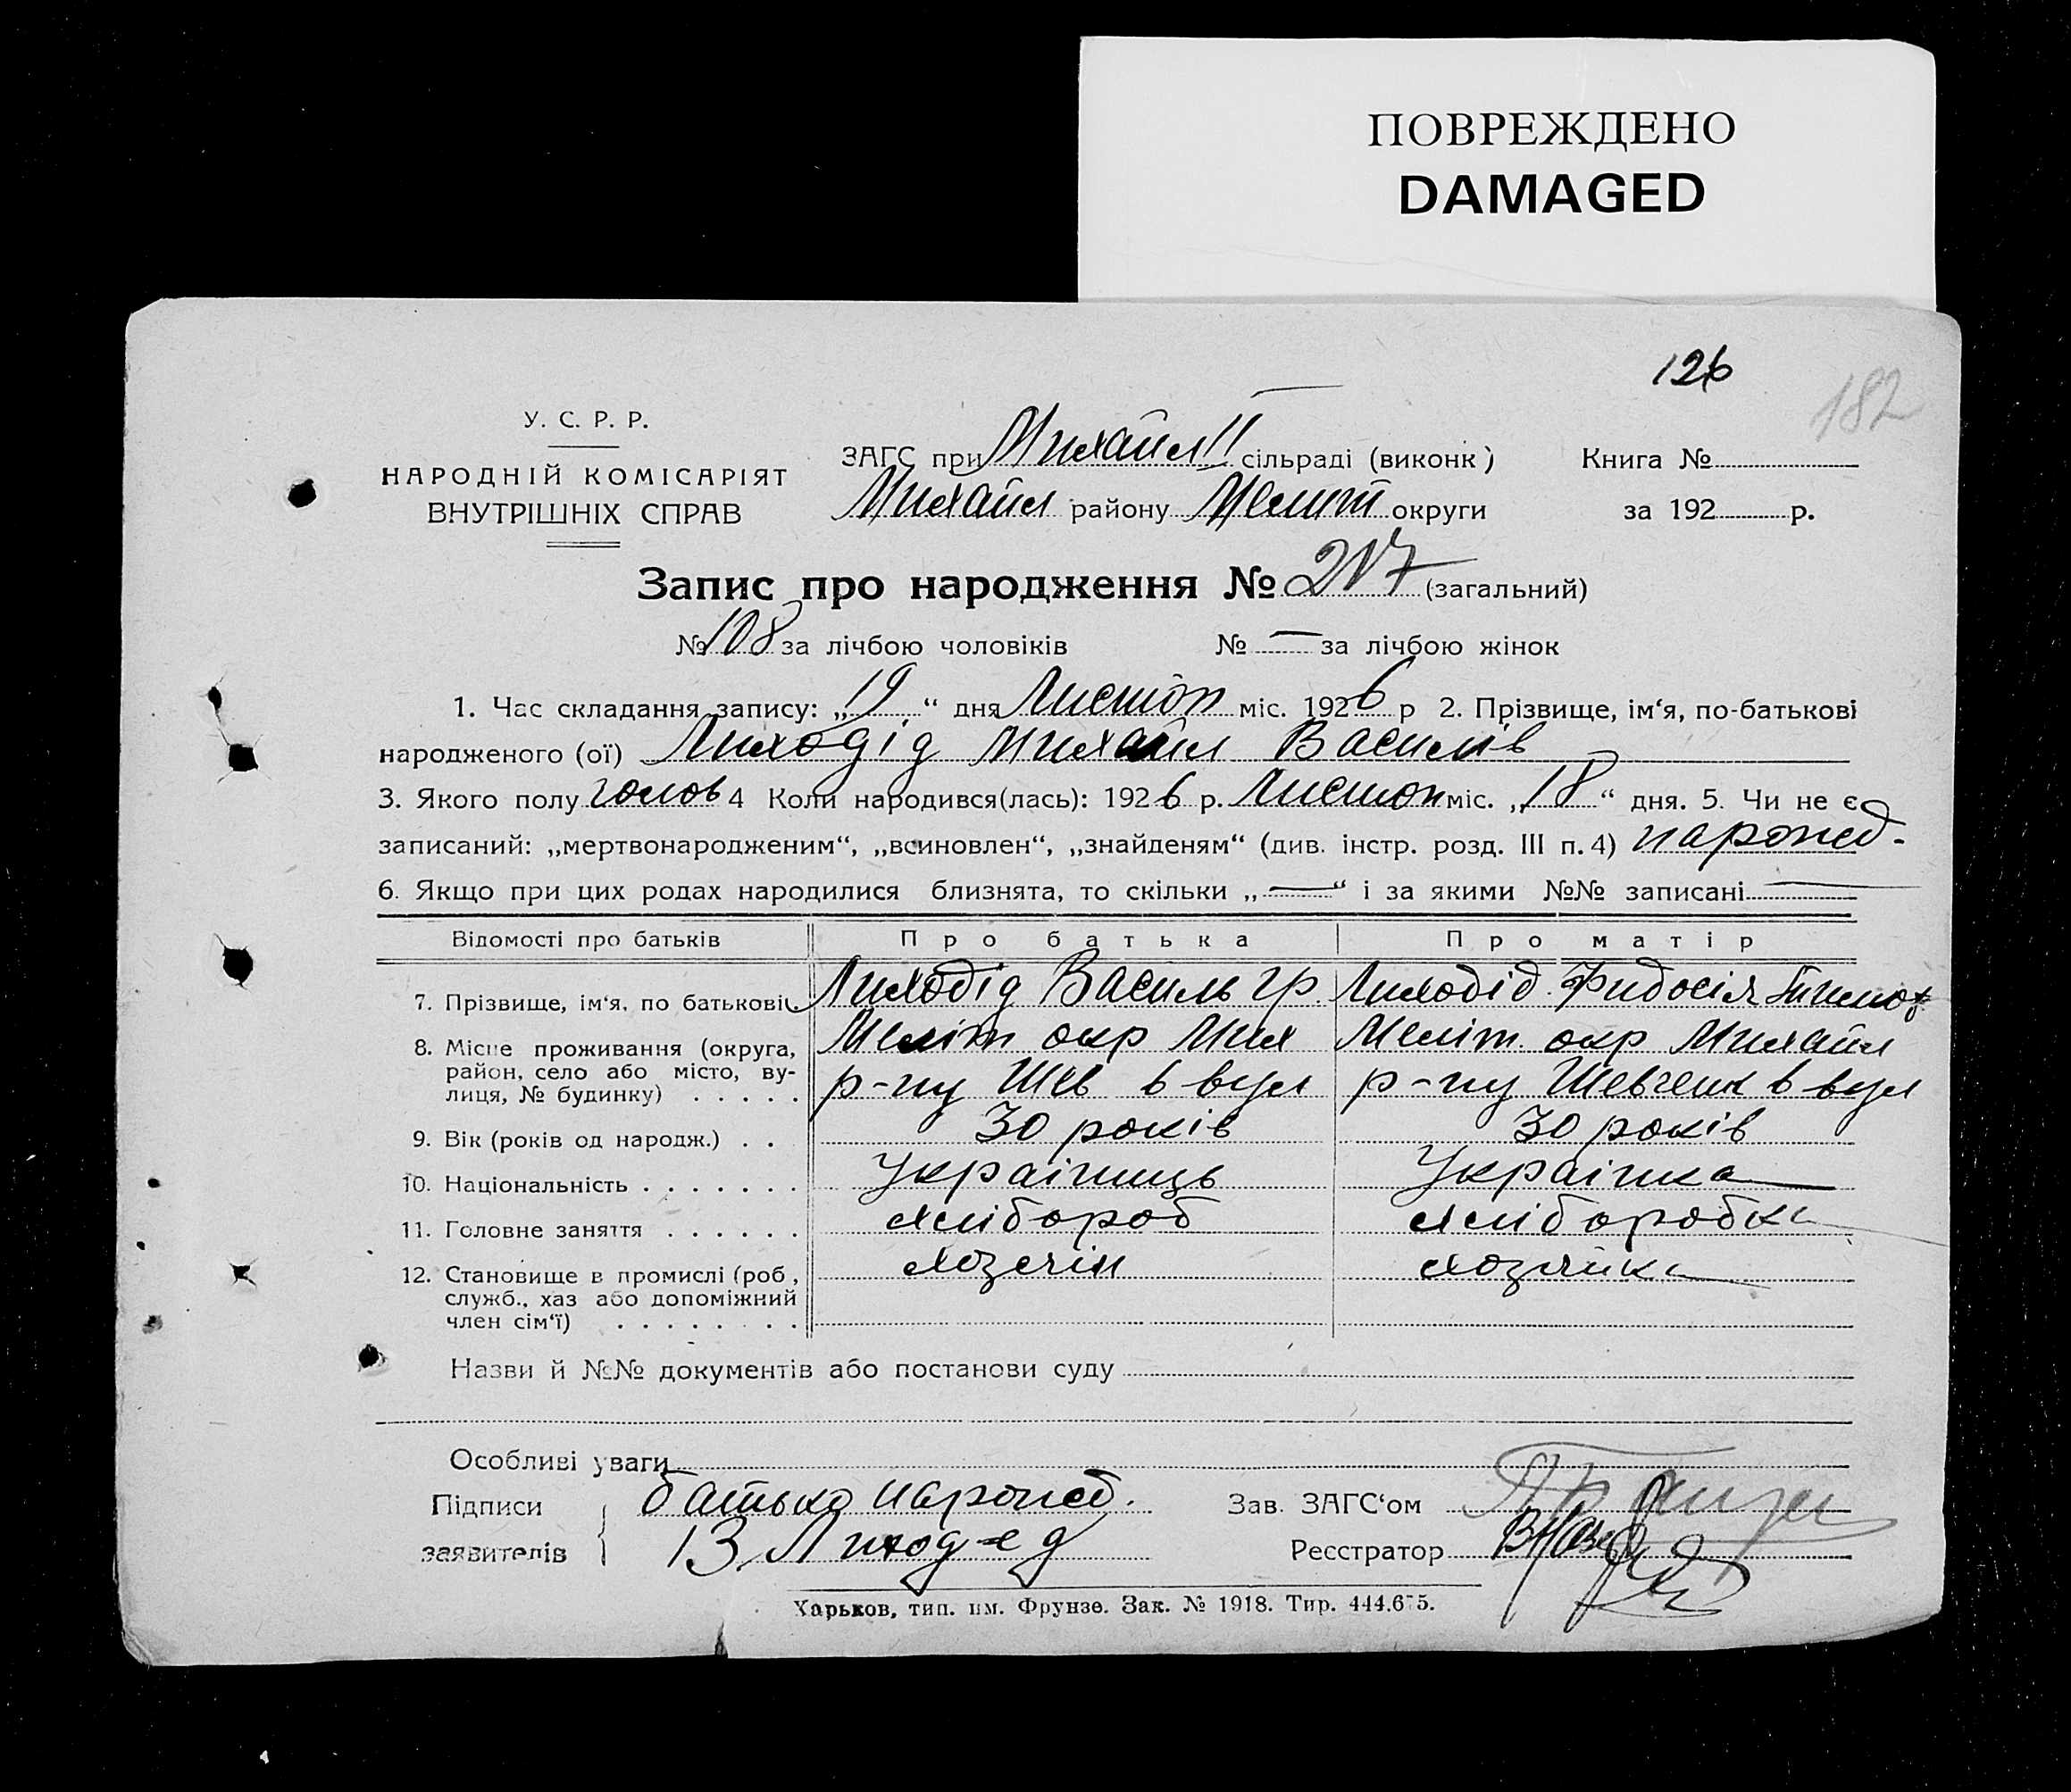 ПОВРЕЖДЕНО
DAMAGED
126
182
У. С. Р. Р.
НАРОДНІЙ КОМІСАРІЯТ
ВНУТРІШНІХ СПРАВ
ЗАГС при Михайл II сільраді (виконк)
Книга №
Михайл району Меліт округи
за 192 р.
Запис про народження № 217 (загальний)
№ 108 за лічбою чоловіків № — за лічбою жінок
1. Час складання запису: „19“ дня Листоп міс. 1926 р 2. Прізвище, ім‘я, по-батькові
народженого (ої) Лиходід Михайл Василів
3. Якого полу чолов 4 Коли народився(лась): 1926 р. Листоп міс. „18“ дня. 5. Чи не є
записаний: „мертвонародженим“, „всиновлен“, „знайденям“ (див. інстр. розд. III п. 4) нарожд-
6. Якщо при цих родах народилися близнята, то скільки „—“ і за якими №№ записані —
Відомості про батьків Про батька Про матір
7. Прізвище, ім‘я, по батькові Лиходід Василь Гр. Лиходід Фидосія
8. Місце проживання (округа, район, село або місто, вулиця, № будинку) Меліт окр Мих Меліт. окр Михайл
р-ну Шев в вул р-ну Шевченк в вул
9. Вік (років од народж.) . . 30 років 30 років
10. Національність . . . . . . . Українць Українка
11. Головне заняття . . . . . . Хлібороб Хліборобка
12. Становище в промислі (роб, служб., хаз або допоміжний член сім‘ї) . . . . . . . . Хозяїн Хозяйка
Назви й №№ документів або постанови суду
Особливі уваги
Підписи батько нарожд. Зав. ЗАГС‘ом
заявителів В. Лиходед Реєстратор
Харьков, тип. им. Фрунзе. Зак. № 1918. Тир. 444.675.